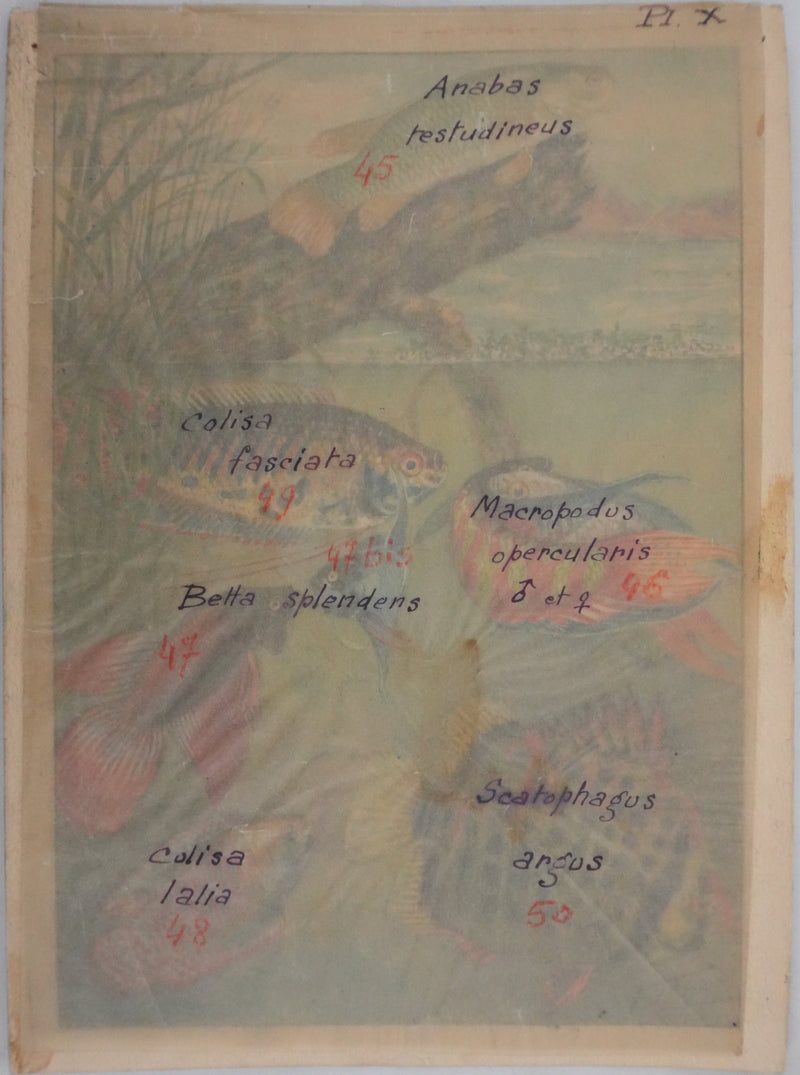 Pl. X
Anabas
testudineus
45
Colisa
fasciata
49
Macropodus
opercularis
♂ et ♀ 46
47 bis
Betta splendens
47
Scatophagus
argus
50
Colisa
lalia
48